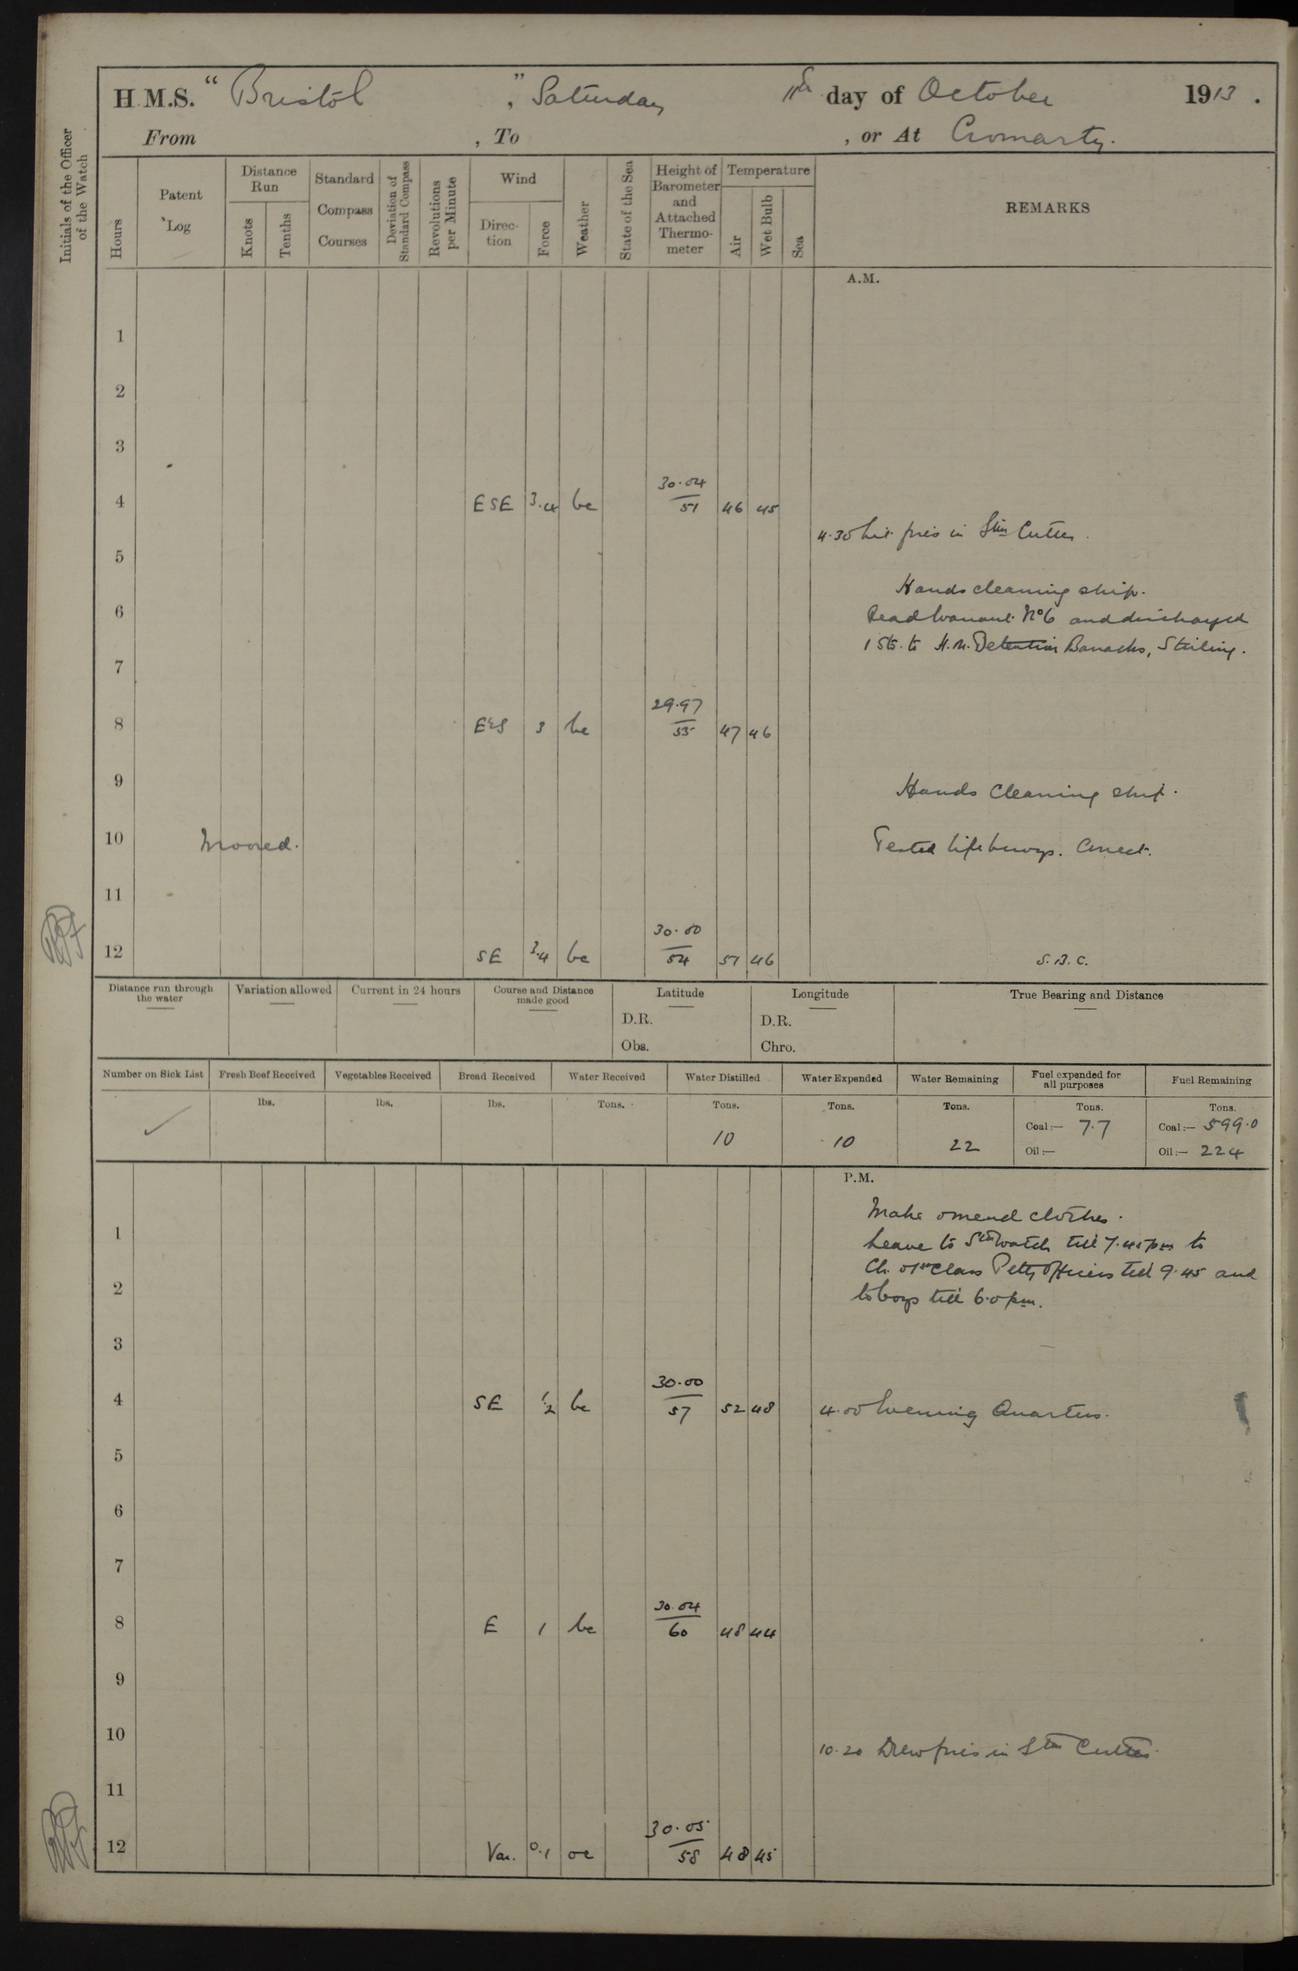 H.M.S. “ Bristol ” , Saturday 11th day of October 1913 .
From , To , or At Cromarty.
Initials of the Officer of the Watch
Hours
Patent Log
Distance Run
Knots
Tenths
Standard Compass Courses
Deviation of Standard Compass
Revolutions per Minute
Wind
Direction
Force
Weather
State of the Sea
Height of Barometer and Attached Thermometer
Temperature
Air
Wet Bulb
Sea
REMARKS
A.M.
1
2
3
4 ESE 3.4 bc 30.04 / 51 46 45
4.30 Lit fires in Stm Cutter.
5
Hands cleaning ship.
6 Read Warrant No 6 and discharged
1 Sto. to H.M. Detention Barracks, Stirling.
7
8 E'S 3 bc 29.97 / 55 47 46
9 Hands cleaning ship.
10 Moored. Tested lifebuoys. Correct.
11
12 SE 3.4 bc 30.00 / 54 51 46 S.B.C.
Distance run through the water
Variation allowed
Current in 24 hours
Course and Distance made good
Latitude
D.R.
Obs.
Longitude
D.R.
Chro.
True Bearing and Distance
Number on Sick List
Fresh Beef Received
Vegetables Received
Bread Received
Water Received
Water Distilled
Water Expended
Water Remaining
Fuel expended for all purposes
Fuel Remaining
lbs. lbs. lbs. Tons. Tons. Tons. Tons. Tons. Tons.
Coal :— 7.7 Coal :— 599.0
10 10 22
Oil :— Oil :— 224
P.M.
Make & mend clothes.
1 Leave to Stbd watch till 7.45 pm to
Ch. & 1st Class Petty Officers till 9.45 and
2 to boys till 6.0 pm.
3
4 SE 1/2 bc 30.00 / 57 52 48 4.00 Evening Quarters.
5
6
7
8 E 1 bc 30.04 / 60 48 44
9
10
10.20 Drew fires in Stm Cutter.
11
12 Var. 0.1 oc 30.05 / 58 48 45